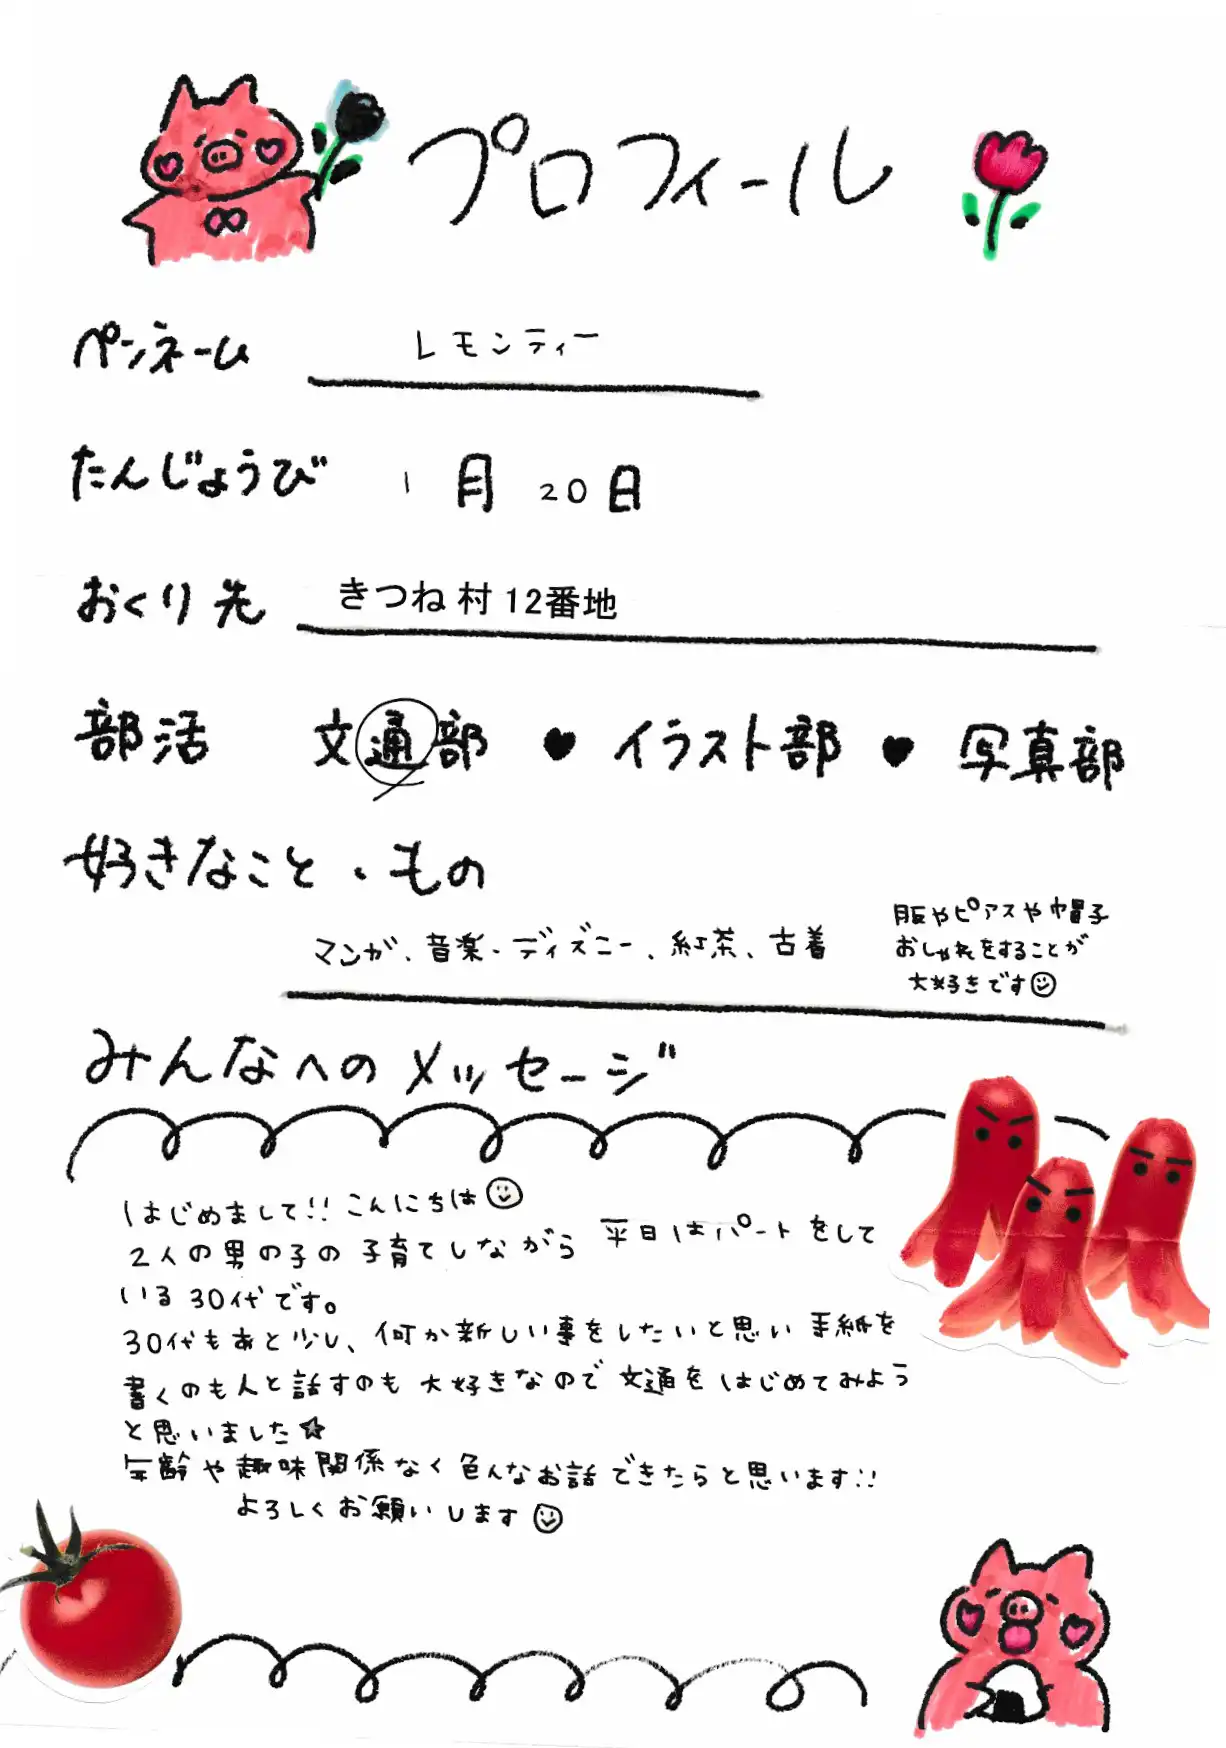 プロフィール
ペンネーム レモンティー
たんじょうび 1月20日
おくり先 きつね村12番地
部活 文通部 ♥ イラスト部 ♥ 写真部
好きなこと・もの
マンガ、音楽・ディズニー、紅茶、古着
服やピアスや帽子
おしゃれをすることが
大好きです☺
みんなへのメッセージ
はじめまして!! こんにちは☺
2人の男の子の子育てしながら 平日はパートをして
いる30代です。
30代もあと少し、何か新しい事をしたいと思い 手紙を
書くのも人と話すのも 大好きなので 文通を はじめてみよう
と思いました☆
年齢や趣味関係なく色んなお話できたらと思います!!
よろしくお願いします☺